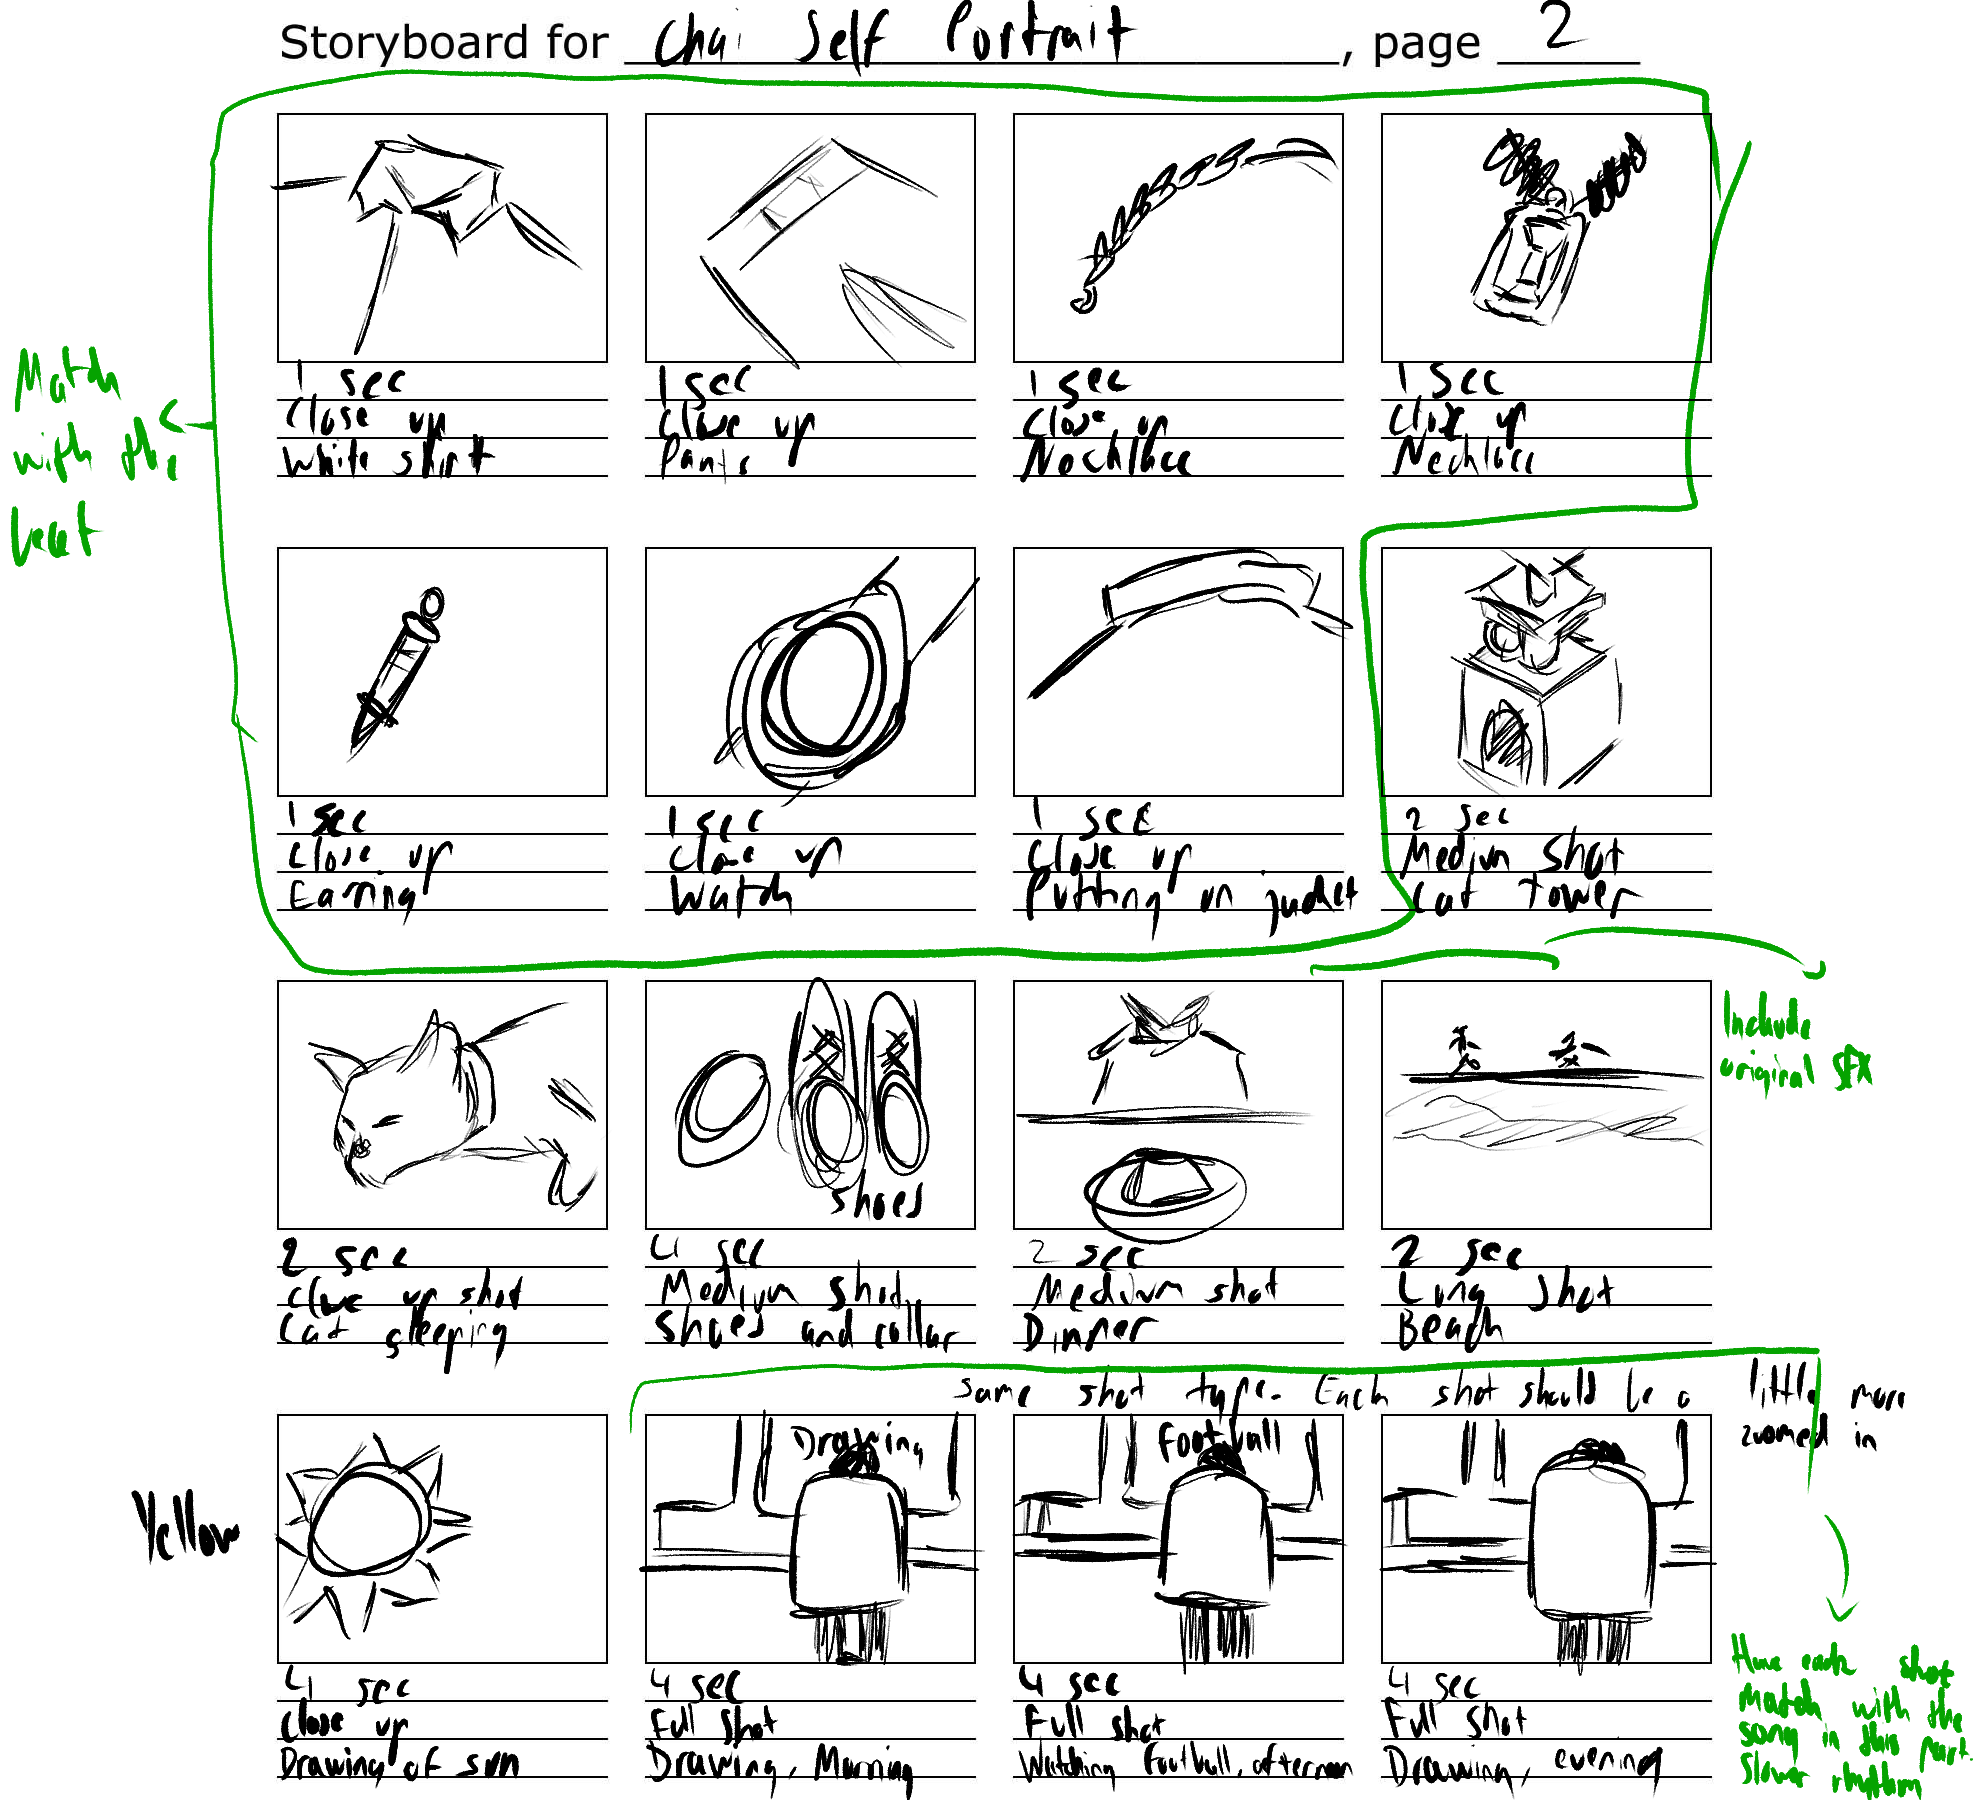 Storyboard for Chai Self Portrait, page 2
Match
with the
beat
1 sec
Close up
White shirt
1 sec
Close up
Pants
1 sec
Close up
Nechlace
1 sec
Close up
Nechlace
1 sec
Close up
Earring
1 sec
Close up
Watch
1 sec
Close up
Putting on jacket
2 sec
Medium shot
Cat tower
Include
original SFX
Shoes
2 sec
Close up shot
Cat sleeping
4 sec
Medium shot
Shoes and collar
2 sec
Medium shot
Dinner
2 sec
Long shot
Beach
Same shot type. Each shot should be a little more
zoomed in
Yellow
Drawing
Football
4 sec
Close up
Drawing of sun
4 sec
Full shot
Drawing, Morning
4 sec
Full shot
Watching football, afternoon
4 sec
Full shot
Drawing, evening
Have each shot
match with the
song in this part.
Slower rhythm